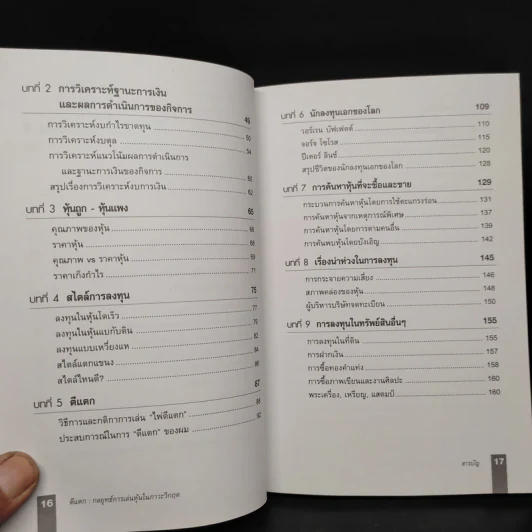 บทที่ 2 การวิเคราะห์ฐานะการเงิน
และผลการดำเนินการของกิจการ 49
การวิเคราะห์งบกำไรขาดทุน 50
การวิเคราะห์งบดุล 54
การวิเคราะห์แนวโน้มผลการดำเนินการ
และฐานะการเงินของกิจการ
สรุปเรื่องการวิเคราะห์งบการเงิน 62
บทที่ 3 หุ้นถูก - หุ้นแพง 65
คุณภาพของหุ้น 66
ราคาหุ้น 68
คุณภาพ vs ราคาหุ้น 69
ราคาเก็งกำไร 71
บทที่ 4 สไตล์การลงทุน 75
ลงทุนในหุ้นโตเร็ว 77
ลงทุนในหุ้นแบกับดิน 79
ลงทุนแบบเหวี่ยงแห 82
สไตล์แตกแขนง 84
สไตล์ไหนดี? 86
บทที่ 5 ตีแตก 87
วิธีการและกติกาการเล่น "ไพ่ตีแตก" 88
ประสบการณ์ในการ "ตีแตก" ของผม 92
16 ตีแตก : กลยุทธ์การเล่นหุ้นในภาวะวิกฤต
บทที่ 6 นักลงทุนเอกของโลก 109
วอร์เรน บัฟเฟตต์ 110
จอร์จ โซรอส 115
ปีเตอร์ ลินช์ 120
สรุปชีวิตของนักลงทุนเอกของโลก 128
บทที่ 7 การค้นหาหุ้นที่จะซื้อและขาย 129
กระบวนการค้นหาหุ้นโดยการใช้ตะแกรงร่อน 131
การค้นหาหุ้นจากเหตุการณ์พิเศษ 137
การค้นหาหุ้นโดยการตามคนอื่น 139
การค้นพบหุ้นโดยบังเอิญ 142
บทที่ 8 เรื่องน่าห่วงในการลงทุน 145
การกระจายความเสี่ยง 146
สภาพคล่องของหุ้น 148
ผู้บริหารบริษัทจดทะเบียน 150
บทที่ 9 การลงทุนในทรัพย์สินอื่นๆ 155
การลงทุนในที่ดิน 155
การฝากเงิน 157
การซื้อทองคำแท่ง 158
การซื้อภาพเขียนและงานศิลปะ 160
พระเครื่อง, เหรียญ, แสตมป์ 160
สารบัญ 17